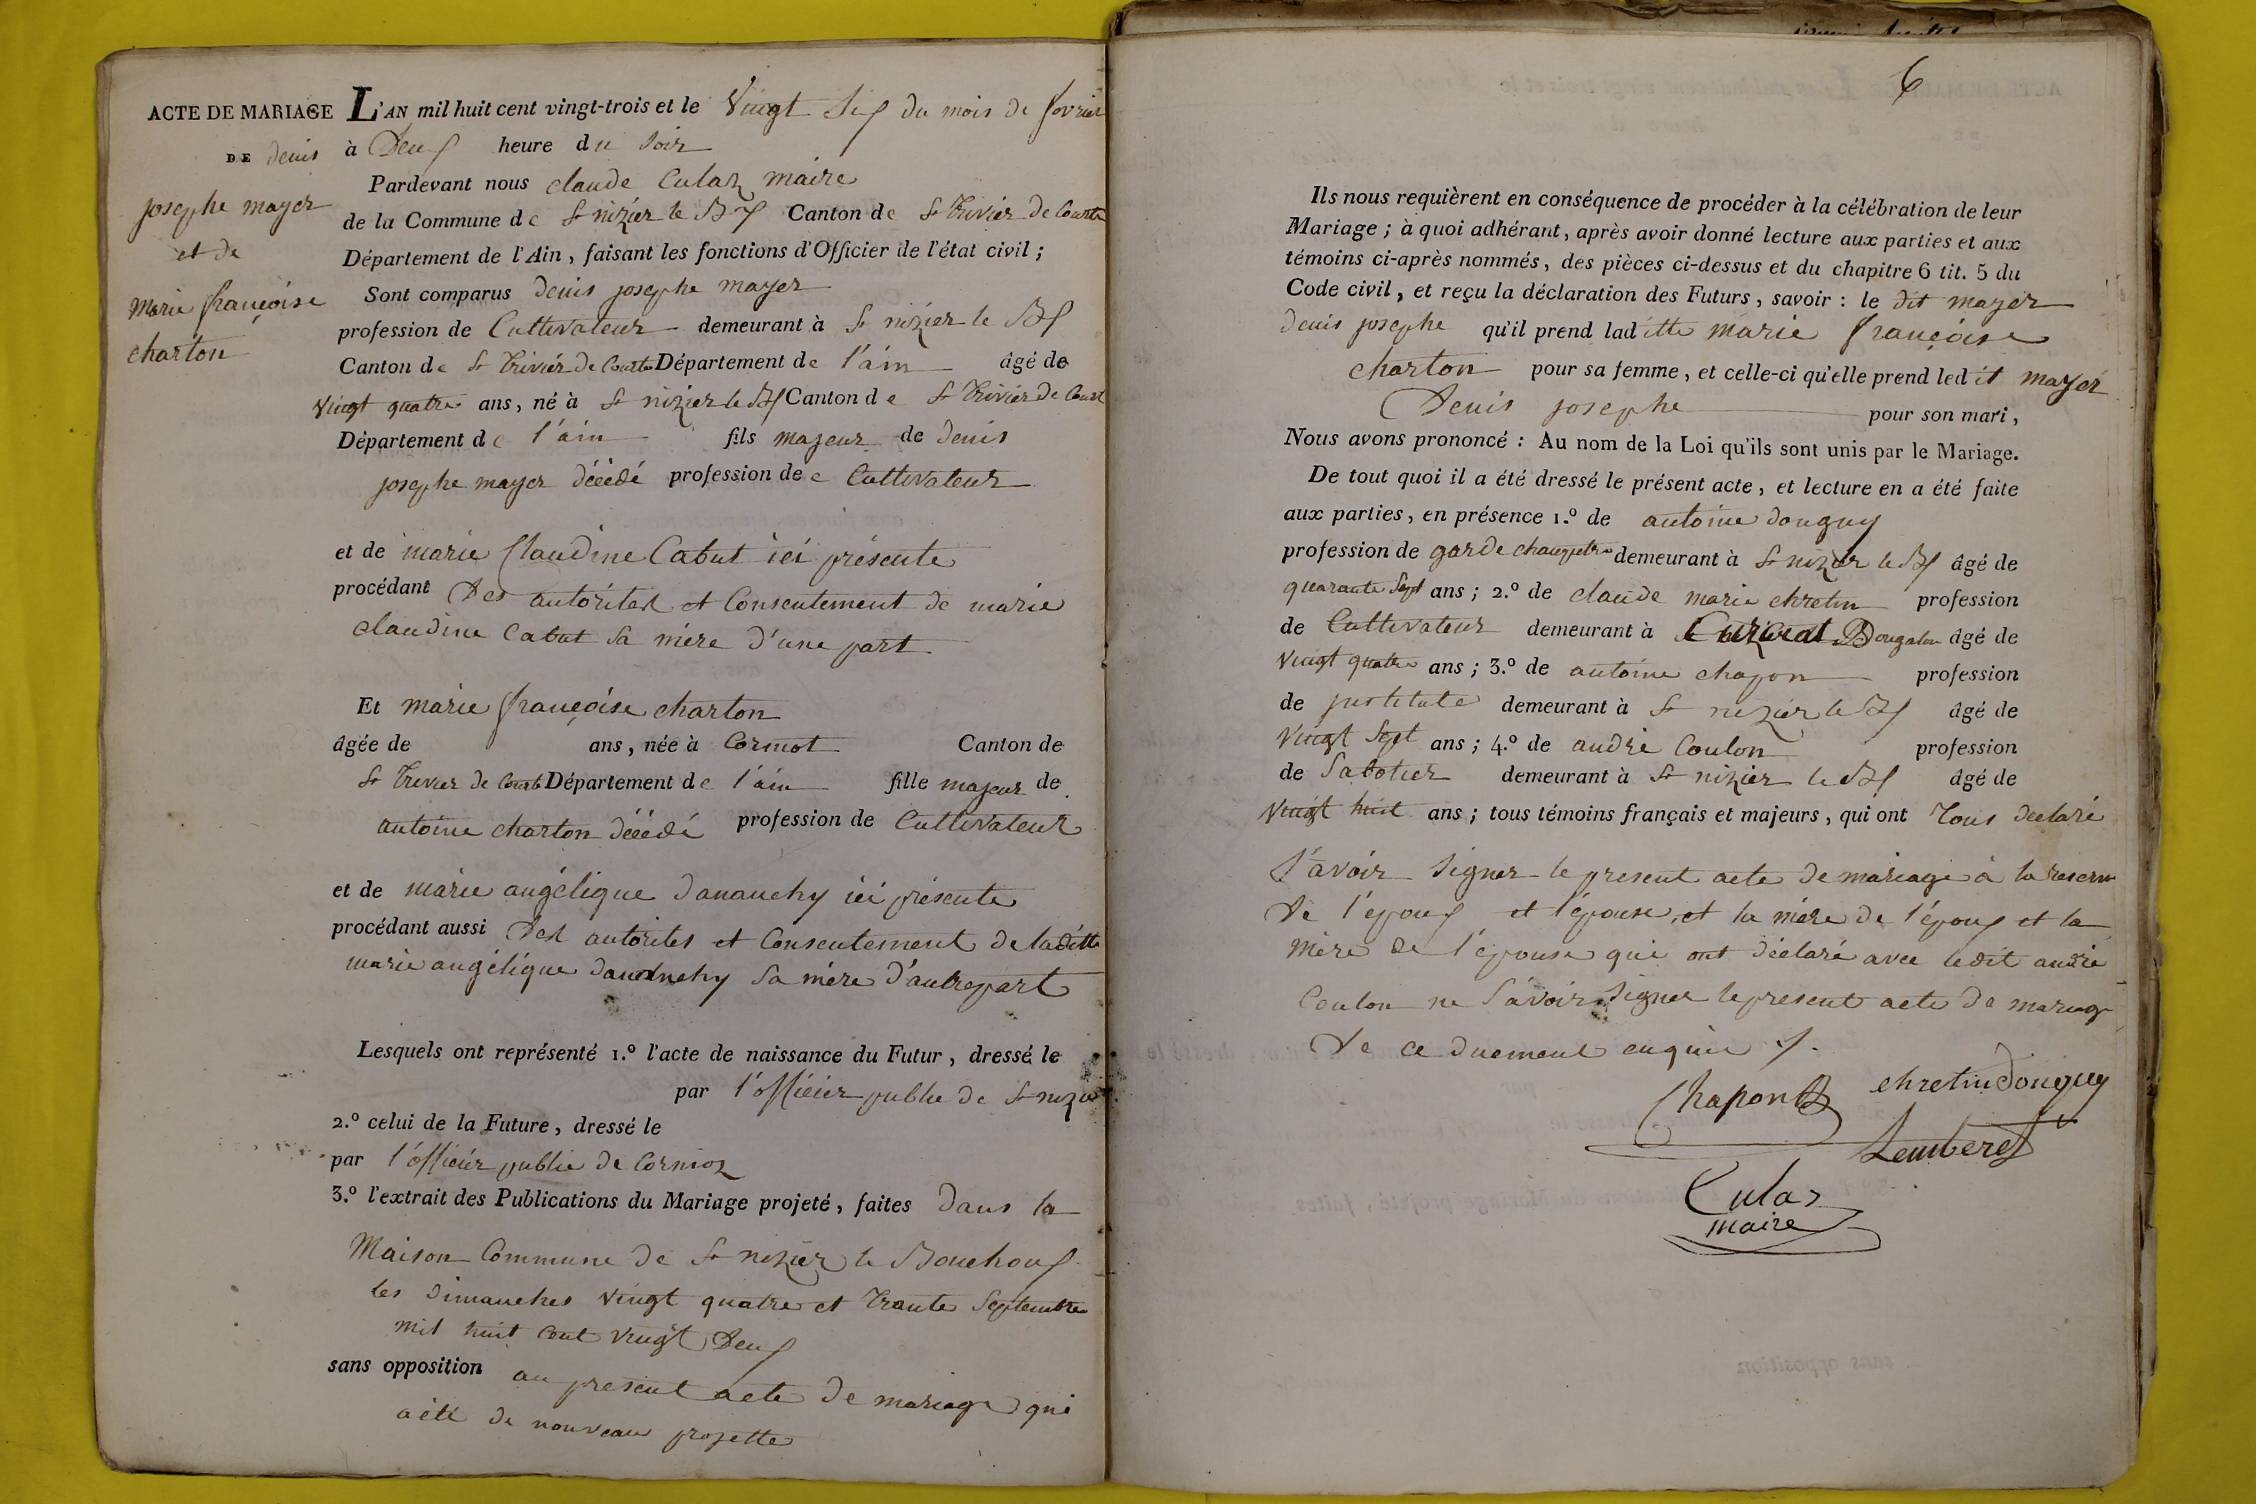 ACTE DE MARIAGE
DE denis
josephe mayer
et de
Marie françoise
charton
L'AN mil huit cent vingt-trois et le Vingt Six du mois de fevrier
à Deux heure du soir
Pardevant nous claude Cular maire
de la Commune de St nizier le Bx Canton de St trivier de Courte
Département de l'Ain, faisant les fonctions d'Officier de l'état civil ;
Sont comparus denis josephe mayer
profession de Cultivateur demeurant à St nizier le Bx
Canton de St trivier de Courte Département de l'ain âgé de
vingt quatre ans, né à St nizier le Bx Canton de St trivier de Court
Département de l'ain fils majeur de denis
josephe mayer déédé profession de e Cultivateur
et de marie Claudine Cabut ici présente
procédant Des autorites et Consentement de marie
claudine Cabut sa mère d'une part
Et marie françoise charton
âgée de ans, née à Cormot Canton de
St trivier de Court Département de l'ain fille majeur de
antoine charton déédé profession de Cultivateur
et de marie angélique dananchy ici présente
procédant aussi Des autorites et Consentement de laditte
marie angélique dananchy sa mère d'autrepart
Lesquels ont représenté 1.º l'acte de naissance du Futur, dressé le
par l'officier public de St nizier
2.º celui de la Future, dressé le
par l'officier public de Cormoz
3.º l'extrait des Publications du Mariage projeté, faites dans la
Maison Commune de St nizier le Bouchoux
les Dimanches vingt quatre et trante Septembre
mil huit cent vingt Deux
sans opposition au present acte de mariage qui
a été de nouveau projette
6
Ils nous requièrent en conséquence de procéder à la célébration de leur
Mariage ; à quoi adhérant, après avoir donné lecture aux parties et aux
témoins ci-après nommés, des pièces ci-dessus et du chapitre 6 tit. 5 du
Code civil, et reçu la déclaration des Futurs, savoir : le dit mayer
denis josephe qu'il prend laditte marie françoise
charton pour sa femme, et celle-ci qu'elle prend ledit mayer
Denis josephe pour son mari,
Nous avons prononcé : Au nom de la Loi qu'ils sont unis par le Mariage.
De tout quoi il a été dressé le présent acte, et lecture en a été faite
aux parties, en présence 1.º de antoine donguy
profession de garde champetre demeurant à St nizier le Bx âgé de
quarante sept ans ; 2.º de claude marie chretin profession
de Cultivateur demeurant à Curciat Dongalon âgé de
vingt quatre ans ; 3.º de antoine chapon profession
de justitute demeurant à St nizier le Bx âgé de
Vingt Sept ans ; 4.º de andré Coulon profession
de Sabotier demeurant à St nizier le Bx âgé de
Vingt huit ans ; tous témoins français et majeurs, qui ont Tous declaré
s'avoir signer le present acte de mariage à la reserve
De l'epoux et l'épouse, et la mère de l'époux et la
mère de l'épouse qui ont déclaré avec ledit andré
Coulon ne s'avoir signer le present acte de mariage
De ce duement enquis
Chapon chretin donguy
Cular
maire